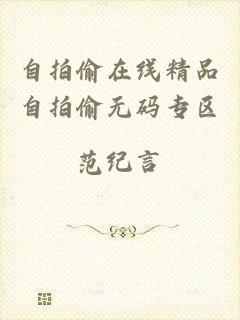 自拍偷在线精品
自拍偷无码专区
范纪言